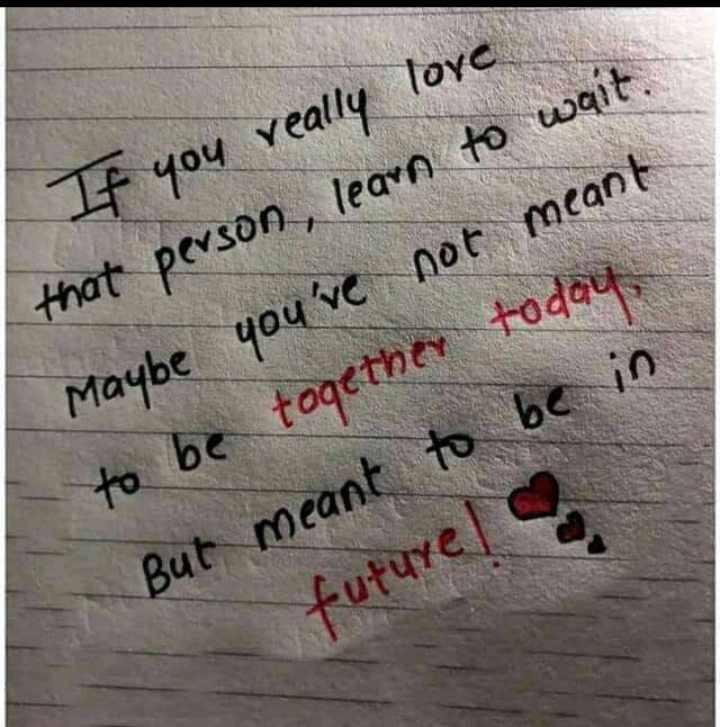 If you really love
that person, learn to wait.
Maybe you've not meant
to be together today,
But meant to be in
future!